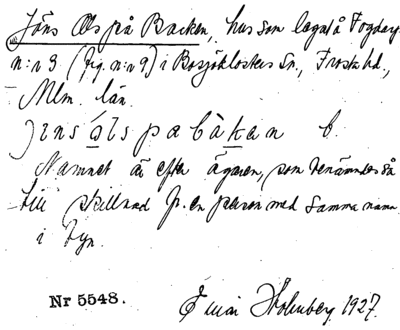 Jöns Ols på Backen, hus som legat å Fogdarp
n:r 3 (fig. n:r 9) i Bosjöklosters sn., Frosta hd.,
Mlm. län.
jins óls pa bàkan b.
Namnet är efter ägaren, som benämndes så
till skillnad fr. en person med samma namn
i byn.
Nr 5548.
Einar Holmberg 1927.